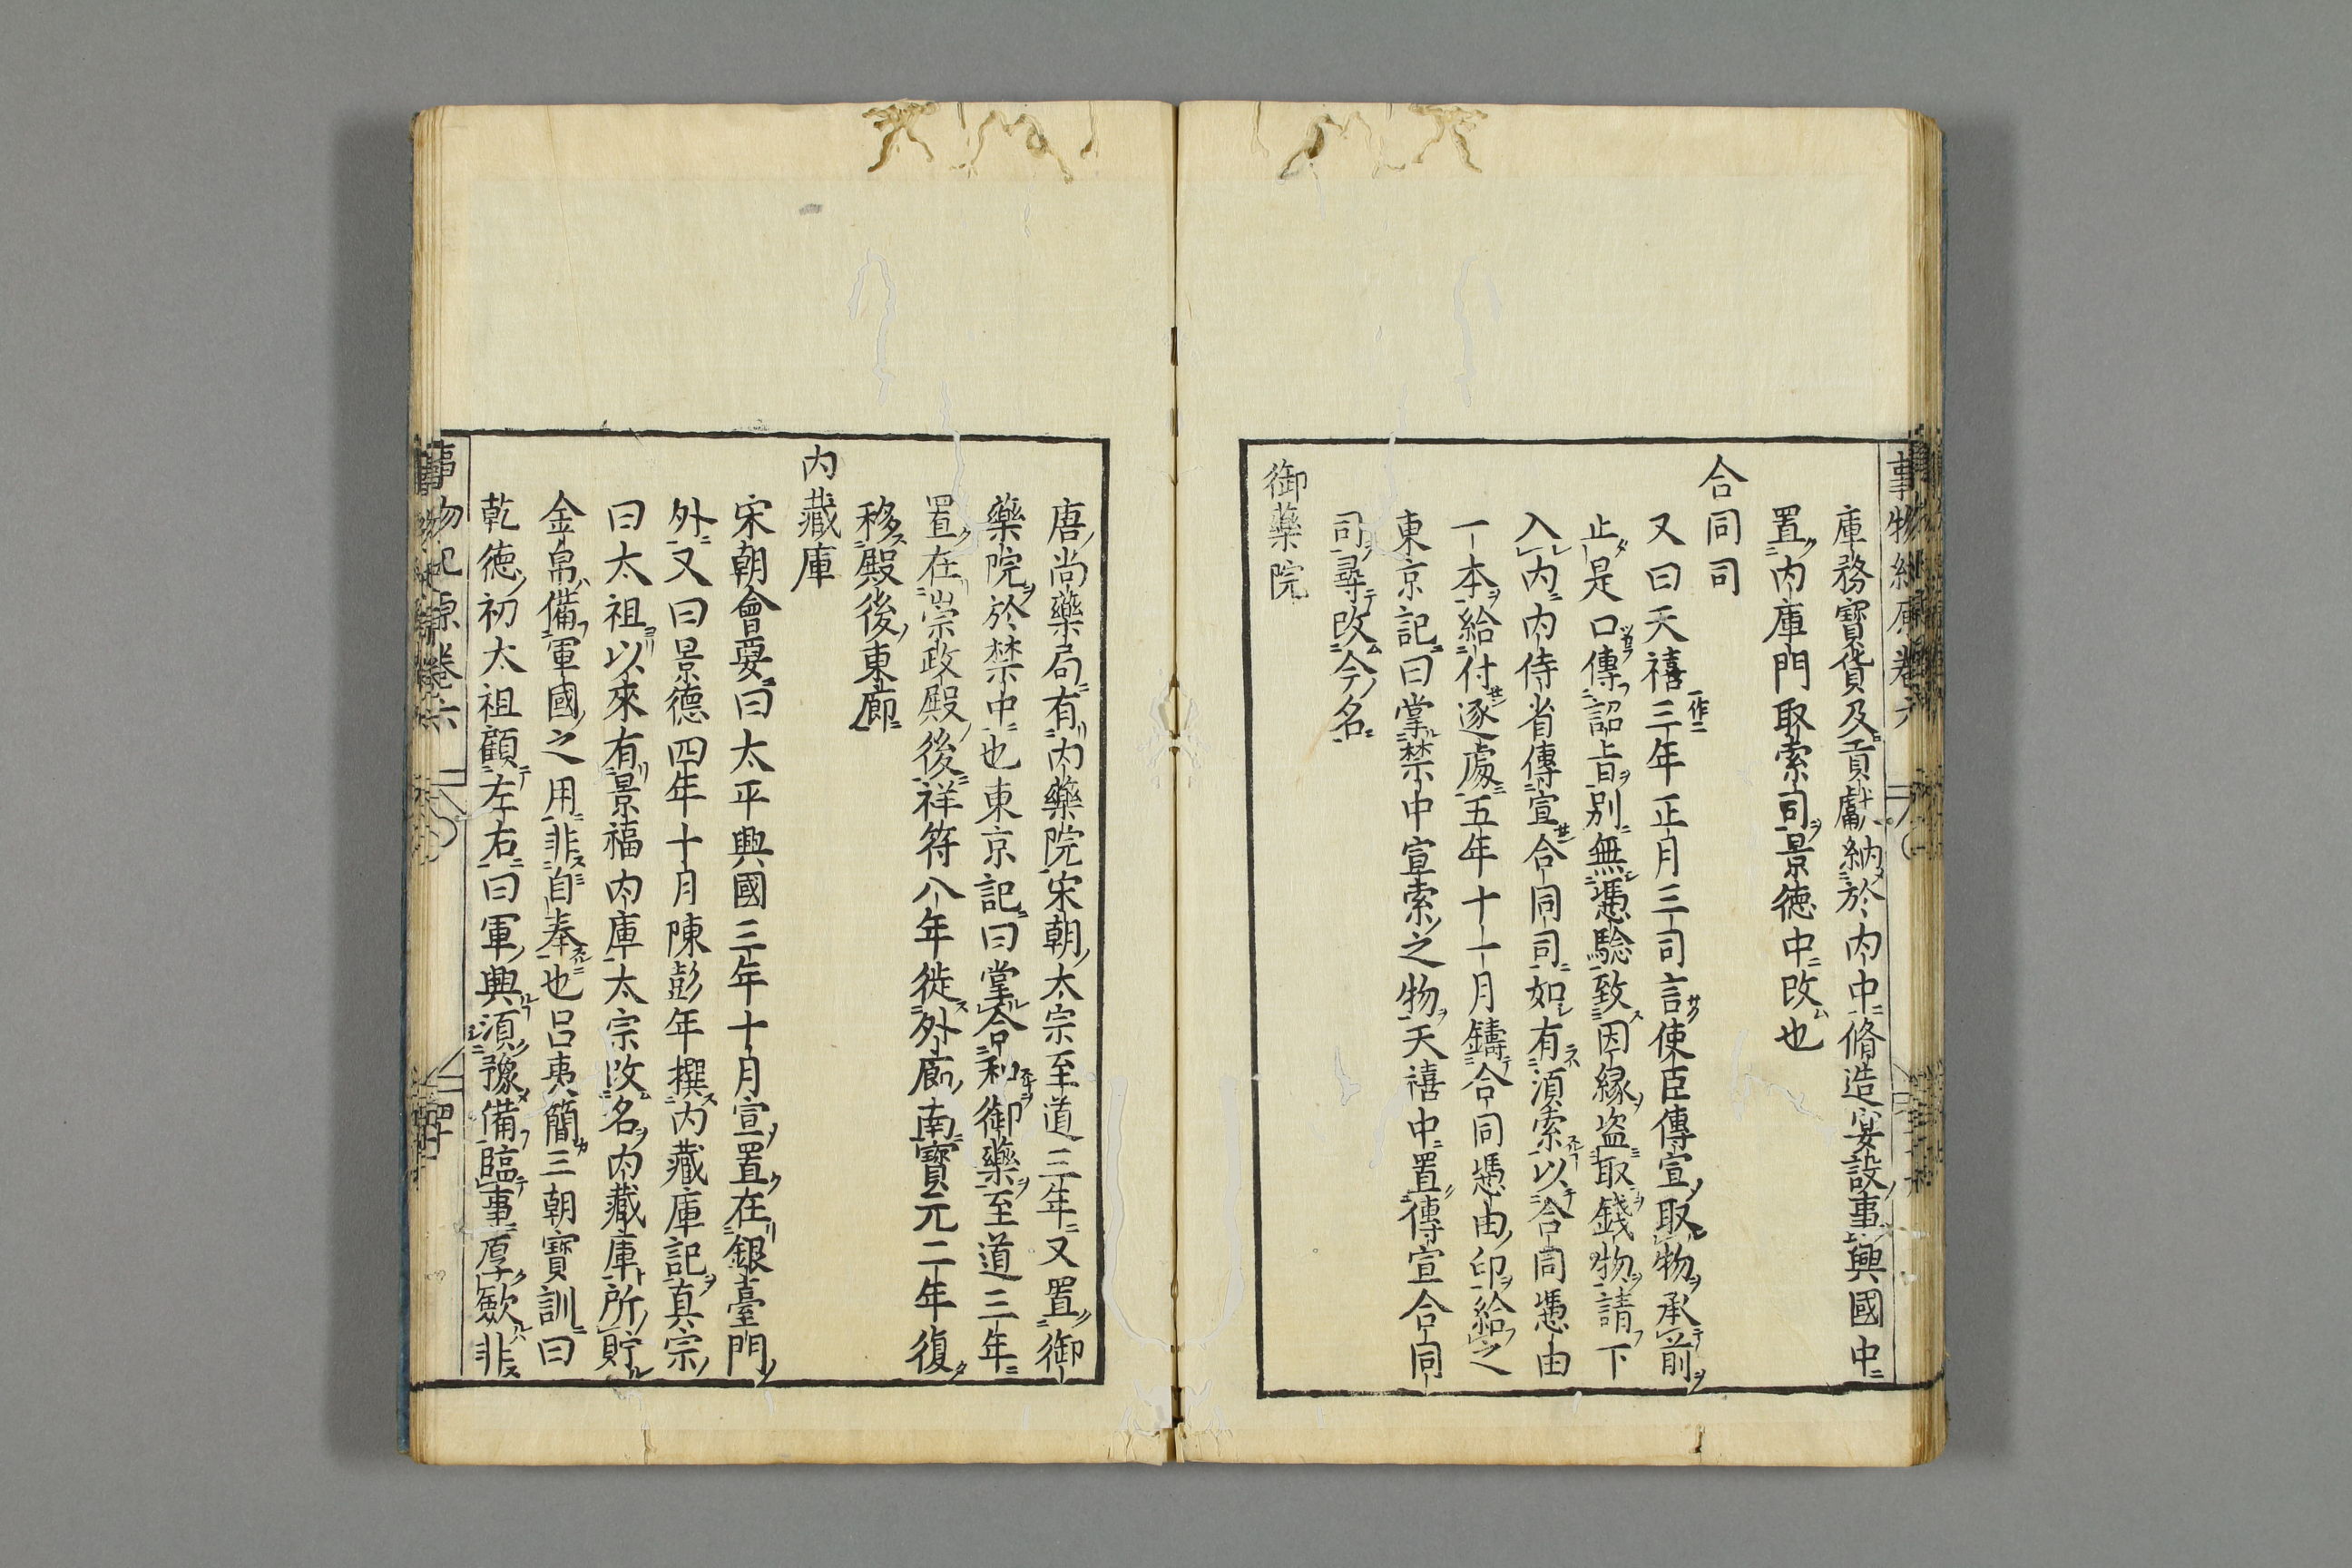 庫務寶貨及貢獻納於内中脩造宴設事興國中
置内庫門取索司景徳中改也
合同司
又曰天禧三年正月三司言使臣傳宣取物承前
一作二
止是口傳詔旨別無憑驗致因縁盗取錢物請下
入内内侍省傳宣合同司如有湏索以合同憑由
一本給付逐處五年十一月鑄合同憑由印給之
東京記曰掌禁中宣索之物天禧中置傳宣合同
司尋改今名
御藥院
唐尚藥局有内藥院宋朝太宗至道三年又置御
藥院於禁中也東京記曰掌合和御藥至道三年
置在崇政殿後祥符八年徙外廊南寳元二年復
移殿後東廊
内藏庫
宋朝會要曰太平興國三年十月宣置在銀臺門
外又曰景德四年十月陳彭年撰内藏庫記真宗
曰太祖以來有景福内庫太宗改名内藏庫所貯
金帛備軍國之用非自奉也呂夷簡三朝寳訓曰
乾徳初太祖顧左右曰軍興湏豫備臨事厚歛非
事物紀原卷六